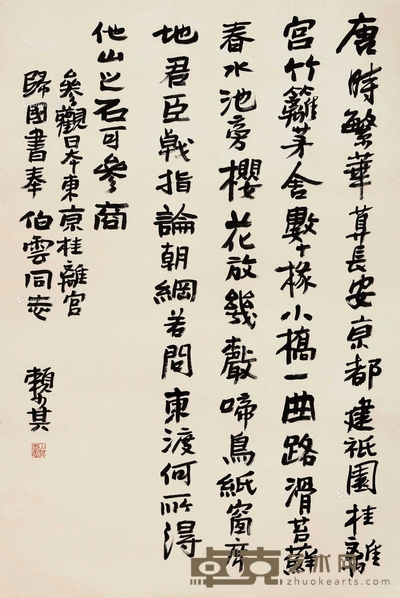 唐時繁華算長安京都建祇園桂離
宮竹籬茅舍數十椽小橋一曲路滑苔蘚
春水池旁櫻花放幾聲啼鳥紙窗齋
地君臣戟指論朝綱若問東渡何所得
他山之石可參商
參觀日本東京桂離宮
歸國書奉伯雲同志
賴少其
卓克艺术网
www.zhuokearts.com